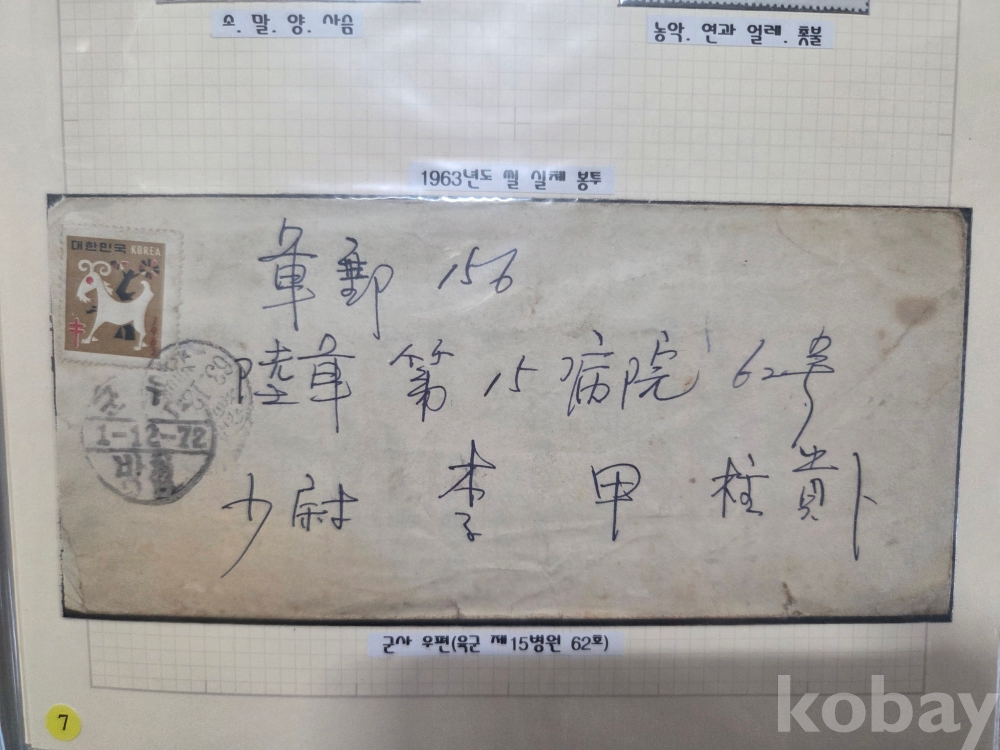 소. 말. 양. 사슴
농악. 연과 얼레. 횃불
1963년도 씰 실체 봉투
대한민국 KOREA
軍郵 156
陸軍 第 15 病院 62号
少尉 李 甲 柱 貴下
1-12-72
군사 우편(육군 제15병원 62호)
7
kobay